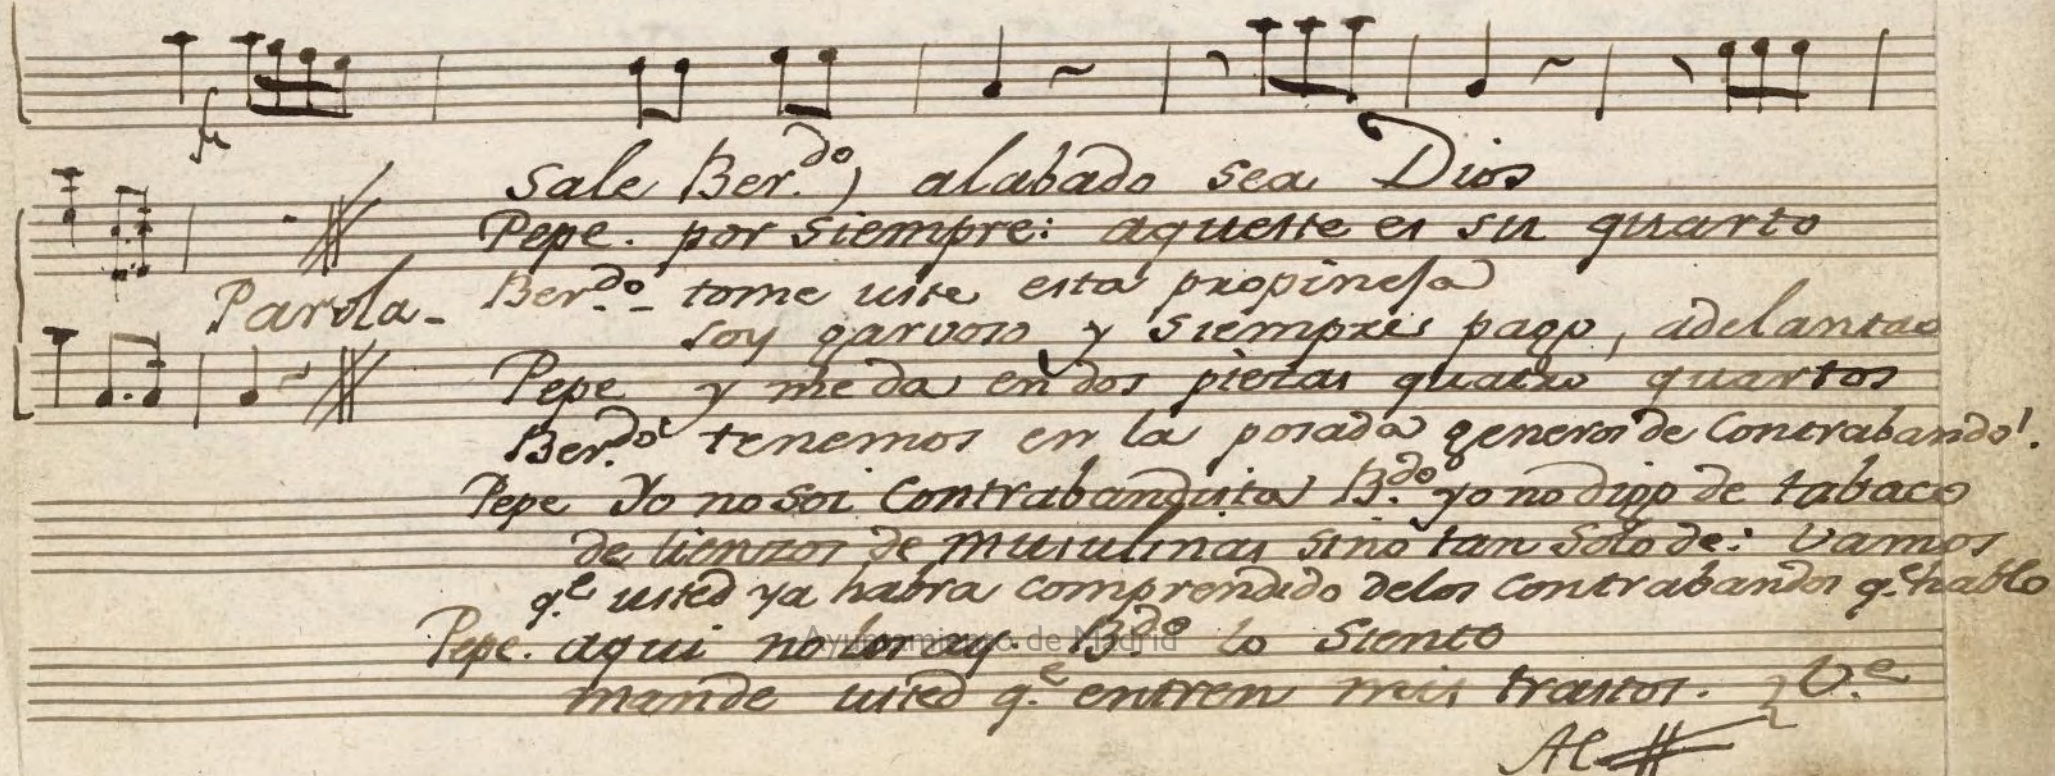 Sale Ber.do) alabado sea Dios
Pepe. por siempre: aqueste es su quarto
Parola - Ber.do - tome uste esta propinesa
soy garvoso y siempre pago, adelantao
Pepe y me da en dos piezas quatro quartos
Ber.do tenemos en la posada generos de Contrabando!
Pepe Yo no soi Contrabandista B.do yo no digo de tabaco
de lienzos de musulinas sino tan solo de: vamos
q.e usted ya habra comprendido delos contrabandos q.e hablo
Pepe. aqui no los ay. B.do lo siento
mande usted q.e entren mis trastos. V.e
Al
Ayuntamiento de Madrid